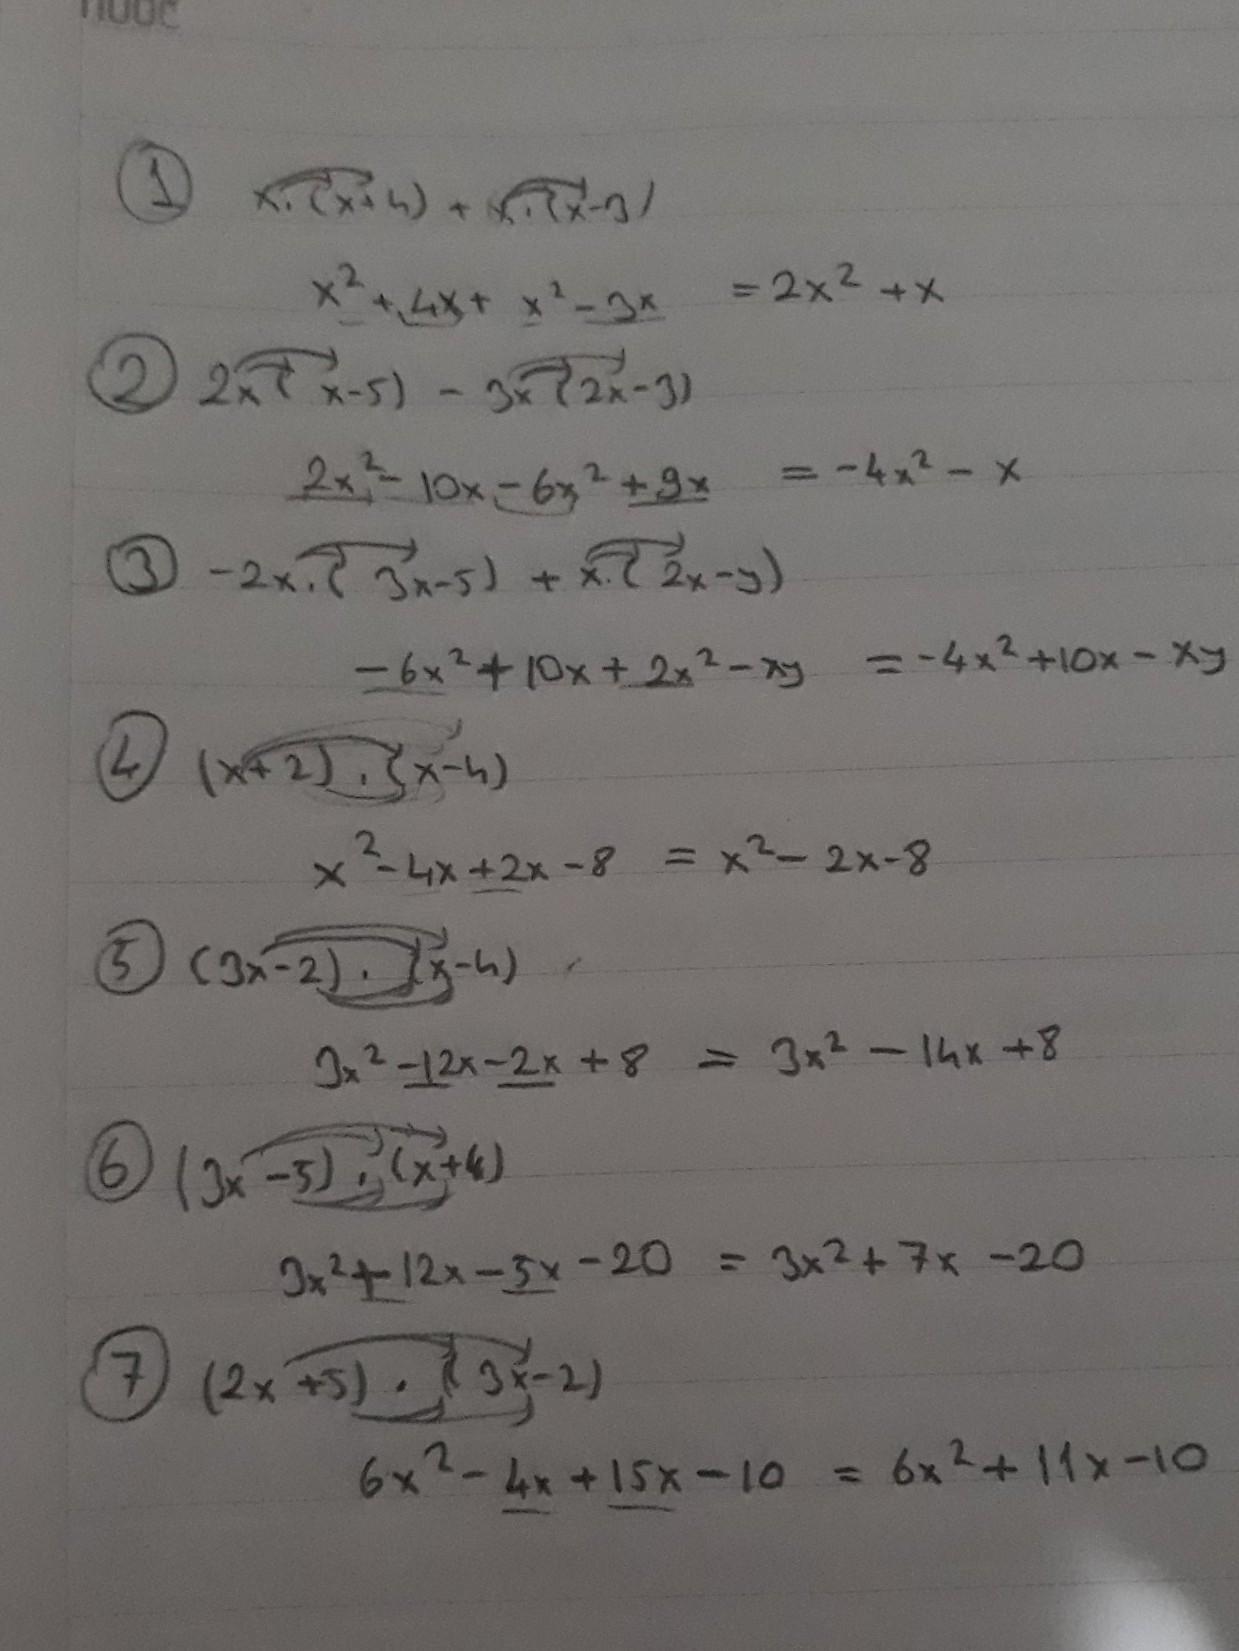 ① x.(x+4) + x.(x-3)
x² + 4x + x² - 3x = 2x² + x
② 2x(x-5) - 3x(2x-3)
2x² - 10x - 6x² + 9x = -4x² - x
③ -2x.(3x-5) + x.(2x-y)
-6x² + 10x + 2x² - xy = -4x² + 10x - xy
④ (x+2).(x-4)
x² - 4x + 2x - 8 = x² - 2x - 8
⑤ (3x-2).(x-4)
3x² - 12x - 2x + 8 = 3x² - 14x + 8
⑥ (3x-5).(x+4)
3x² + 12x - 5x - 20 = 3x² + 7x - 20
⑦ (2x+5).(3x-2)
6x² - 4x + 15x - 10 = 6x² + 11x - 10